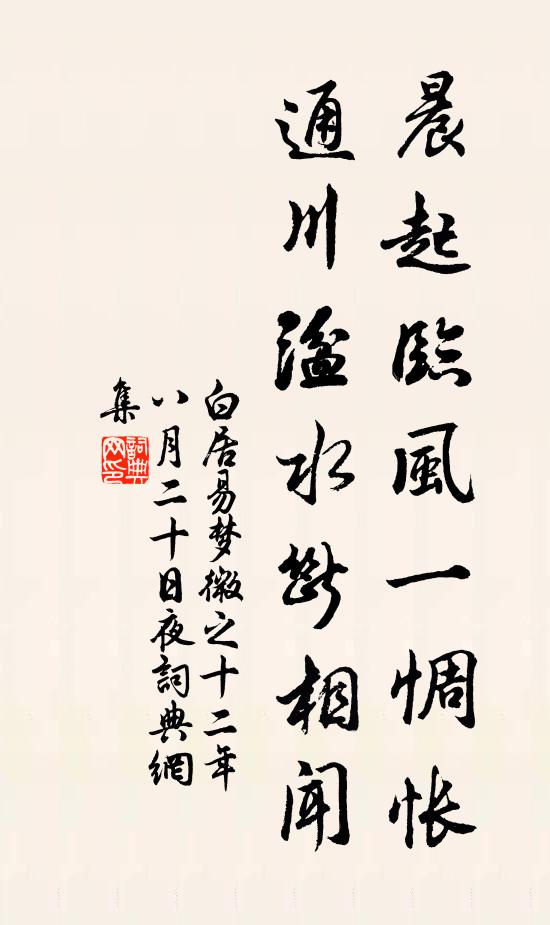 晨起臨風一惆怅
通川湓水斷相聞
白居易梦微之十二年
八月二十日夜詞典網
集
詞典
网印